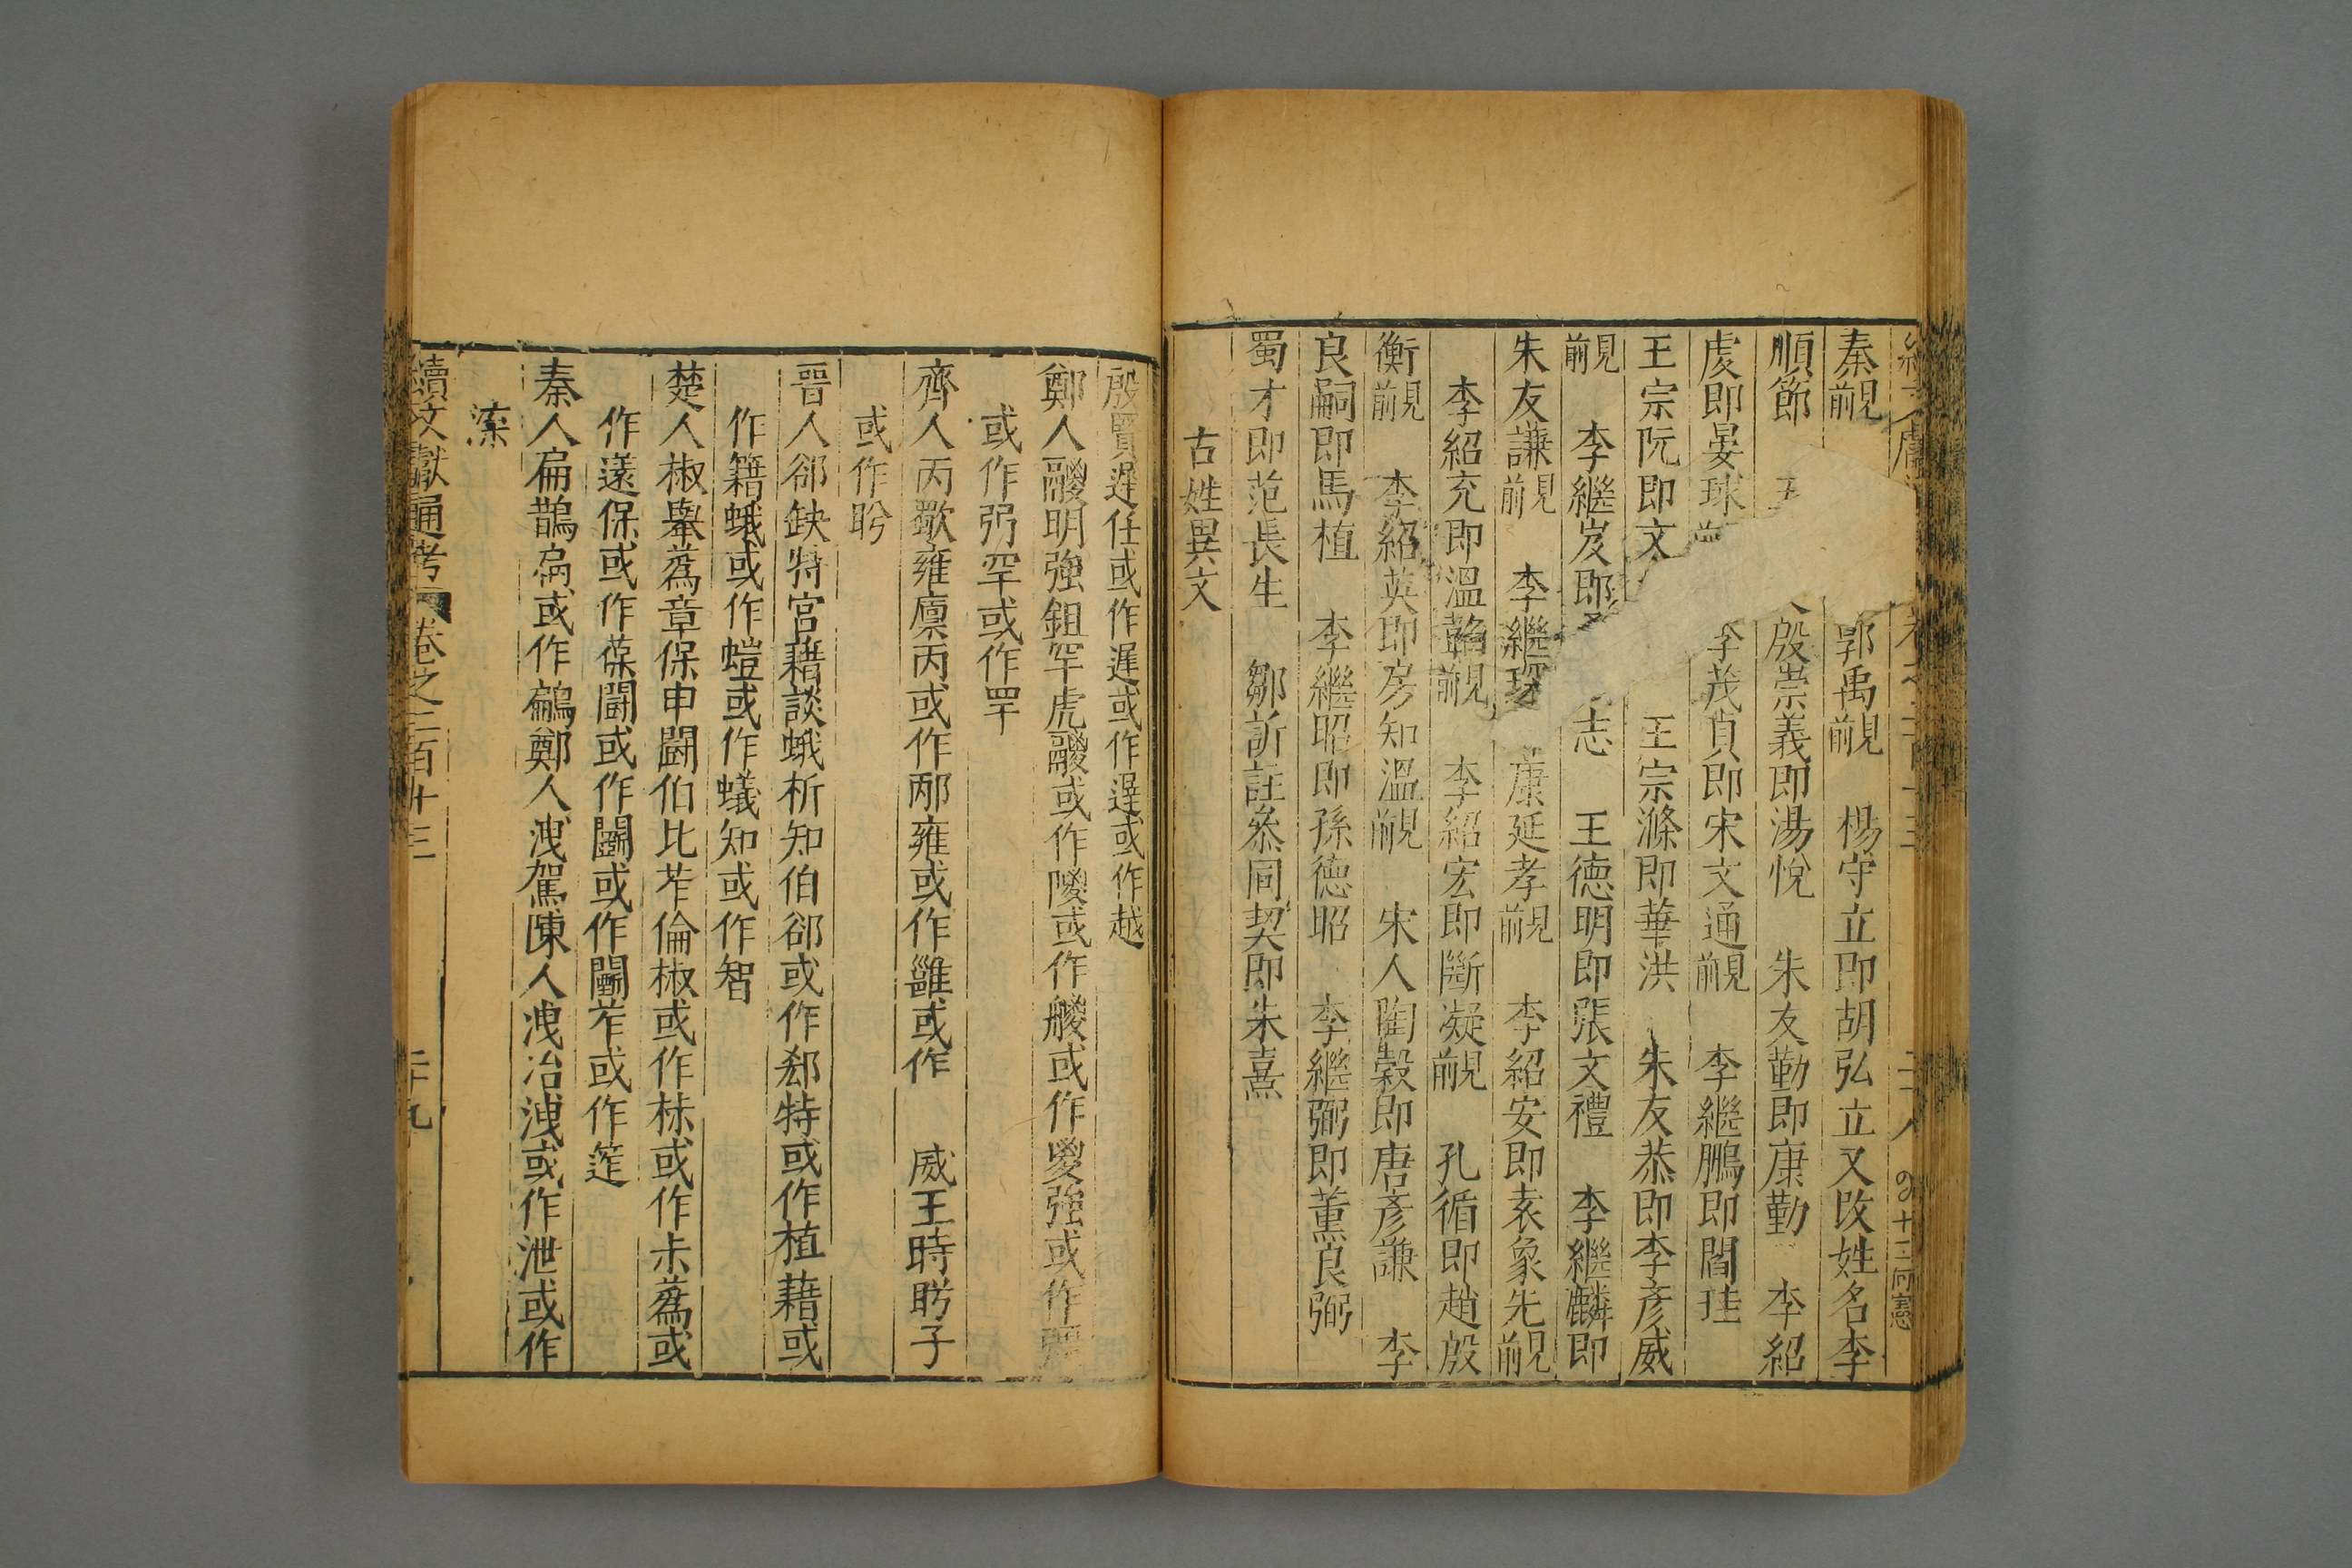 秦見前 郭禹見前 楊守立即胡弘立又改姓名李
順節 殷崇義即湯悅 朱友勤即康勤 李紹
虔即晏球 李茂貞即宋文通見前 李繼鵬即閻珪
王宗阮即文 王宗滌即華洪 朱友恭即李彥威
見前 李繼岌即 志 王德明即張文禮 李繼麟即
朱友謙見前 李繼 康延孝見前 李紹安即袁象先見前
李紹充即溫韜見前 李紹宏即斷凝見前 孔循即趙殷
衡見前 李紹英即房知溫見前 宋人陶穀即唐彥謙 李
良嗣即馬植 李繼昭即孫德昭 李繼弼即董良弼
蜀才即范長生 鄒訢註叅同契即朱熹
古姓異文
殷賢遟任或作遲或作遅或作越
鄭人鬷明強鉏罕虎鬷或作騣或作艐或作嵏強或作
或作弜罕或作罕
齊人丙歜雍廪丙或作邴雍或作雝或作 威王時盻子
或作肹
晉人郤缺特宮藉談蛾析知伯郤或作郄特或作植藉或
作籍蛾或作螘或作蟻知或作智
楚人椒舉蒍章保申鬬伯比笮倫椒或作菽或作尗蒍或
作薳保或作葆鬬或作鬭或作鬪笮或作筰
秦人扁鵲扁或作鶣鄭人洩駕陳人洩冶洩或作泄或作
渫
續文獻通考 卷之二百十三 二十九